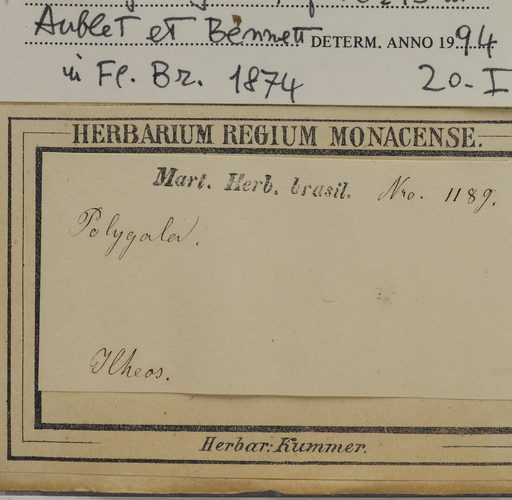 Aublet et Bennett DETERM. ANNO 1994
in Fl. Br. 1874 20-I
HERBARIUM REGIUM MONACENSE.
Mart. Herb. brasil. Nro. 1189.
Polygala.
Ilheos.
Herbar: Kummer.